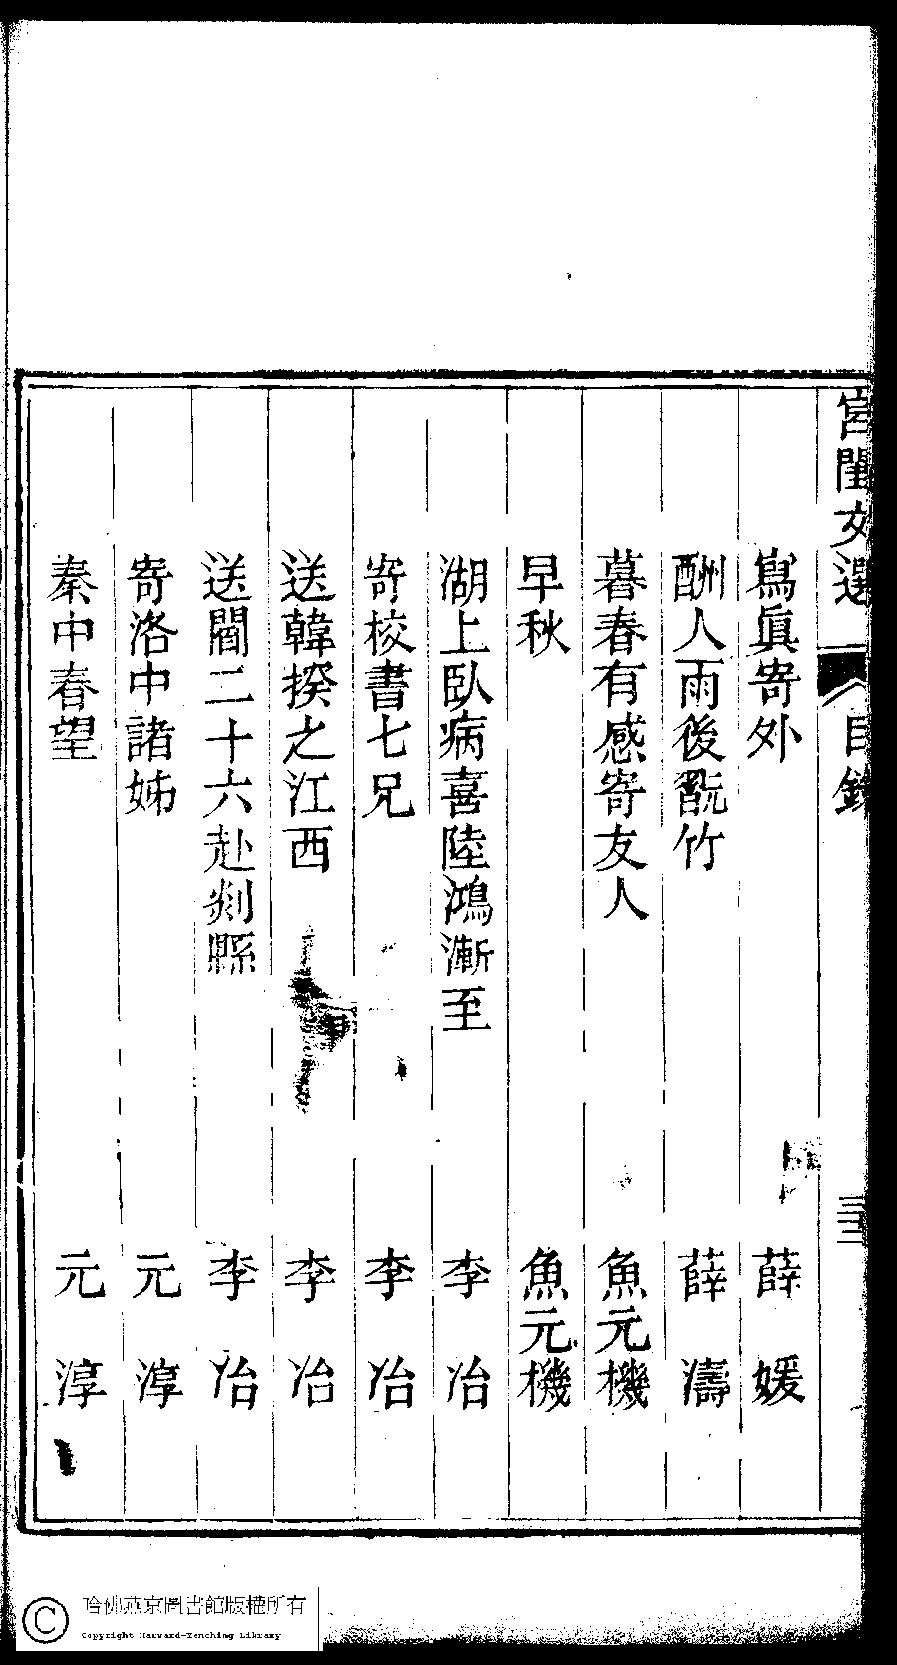 宮閨文選
目錄
三三
寫眞寄外　薛媛
酬人雨後翫竹　薛濤
暮春有感寄友人　魚元機
早秋　魚元機
湖上臥病喜陸鴻漸至　李冶
寄校書七兄　李冶
送韓揆之江西　李冶
送閻二十六赴剡縣　李冶
寄洛中諸姊　元淳
秦中春望　元淳
哈佛燕京圖書館版權所有
Copyright Harvard-Yenching Library